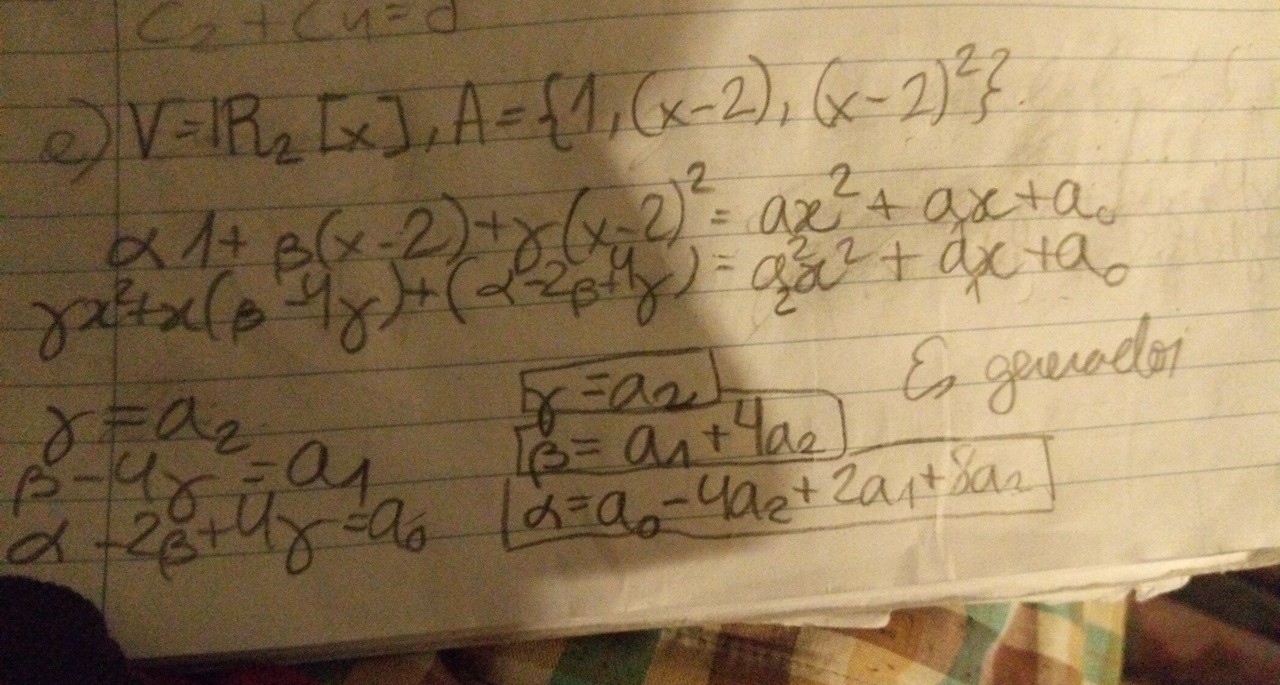 C₂ + C₄ = d
e) V = ℝ₂[x], A = {1, (x-2), (x-2)²}.
α1 + β(x-2) + γ(x-2)² = ax² + a₁x + a₀
γx² + x(β - 4γ) + (α - 2β + 4γ) = a₂²x² + a₁x + a₀
Es generador
γ = a₂
β - 4γ = a₁
α - 2β + 4γ = a₀
γ = a₂
β = a₁ + 4a₂
α = a₀ - 4a₂ + 2a₁ + 8a₂